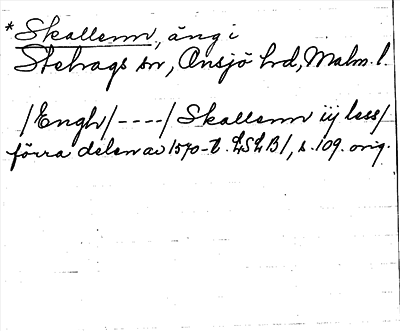 *Skallenn, äng i
Stehags sn, Onsjö hd, Malm. l.
/Engh/----/Skallenn iij less/
förra delen av 1570-t. LSLB1, s. 109. orig.